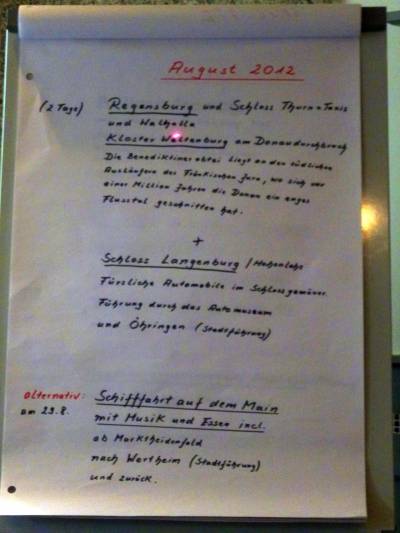 August 2012
(2 Tage) Regensburg und Schloss Thurn+Taxis
und Walhalla
Kloster Weltenburg am Donaudurchbruch
Die Benediktinerabtei liegt an den südlichen
Ausläufern des Fränkischen Jura, wo sich vor
einer Million Jahren die Donau ein enges
Flusstal geschnitten hat.
+
Schloss Langenburg / Hohenlohe
Fürstliche Automobile im Schlossgemäuer
Führung durch das Automuseum
und Öhringen (Stadtführung)
alternativ: Schifffahrt auf dem Main
am 23.8. mit Musik und Essen incl.
ab Marktheidenfeld
nach Wertheim (Stadtführung)
und zurück.